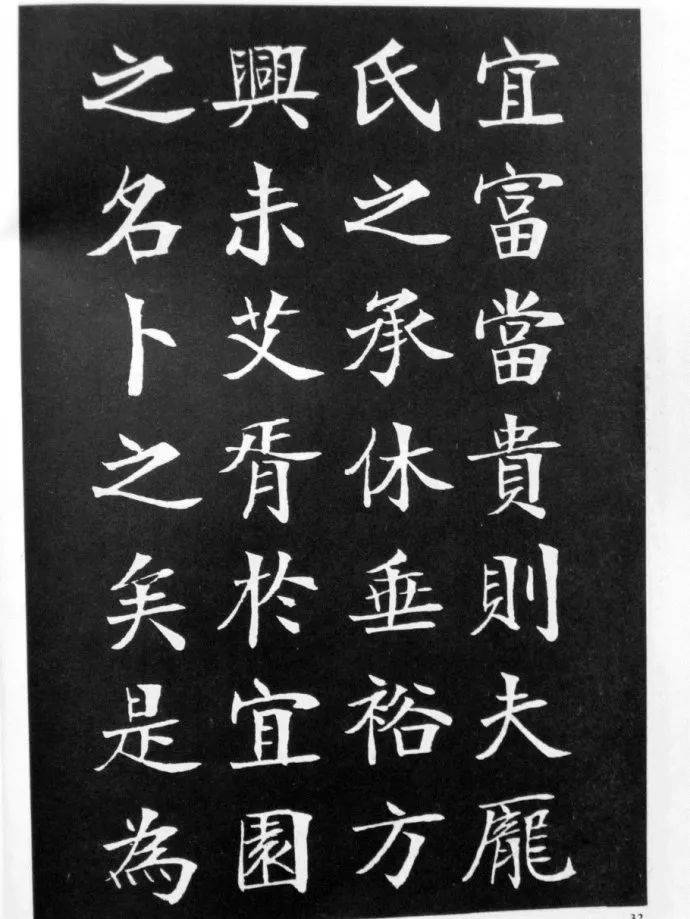 宜富當貴則夫龐
氏之承休垂裕方
興未艾胥於宜園
之名卜之矣是為
32